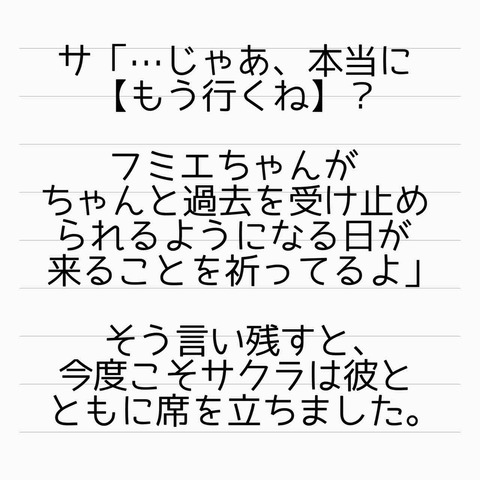 サ「…じゃあ、本当に
【もう行くね】？
フミエちゃんが
ちゃんと過去を受け止め
られるようになる日が
来ることを祈ってるよ」
そう言い残すと、
今度こそサクラは彼と
ともに席を立ちました。